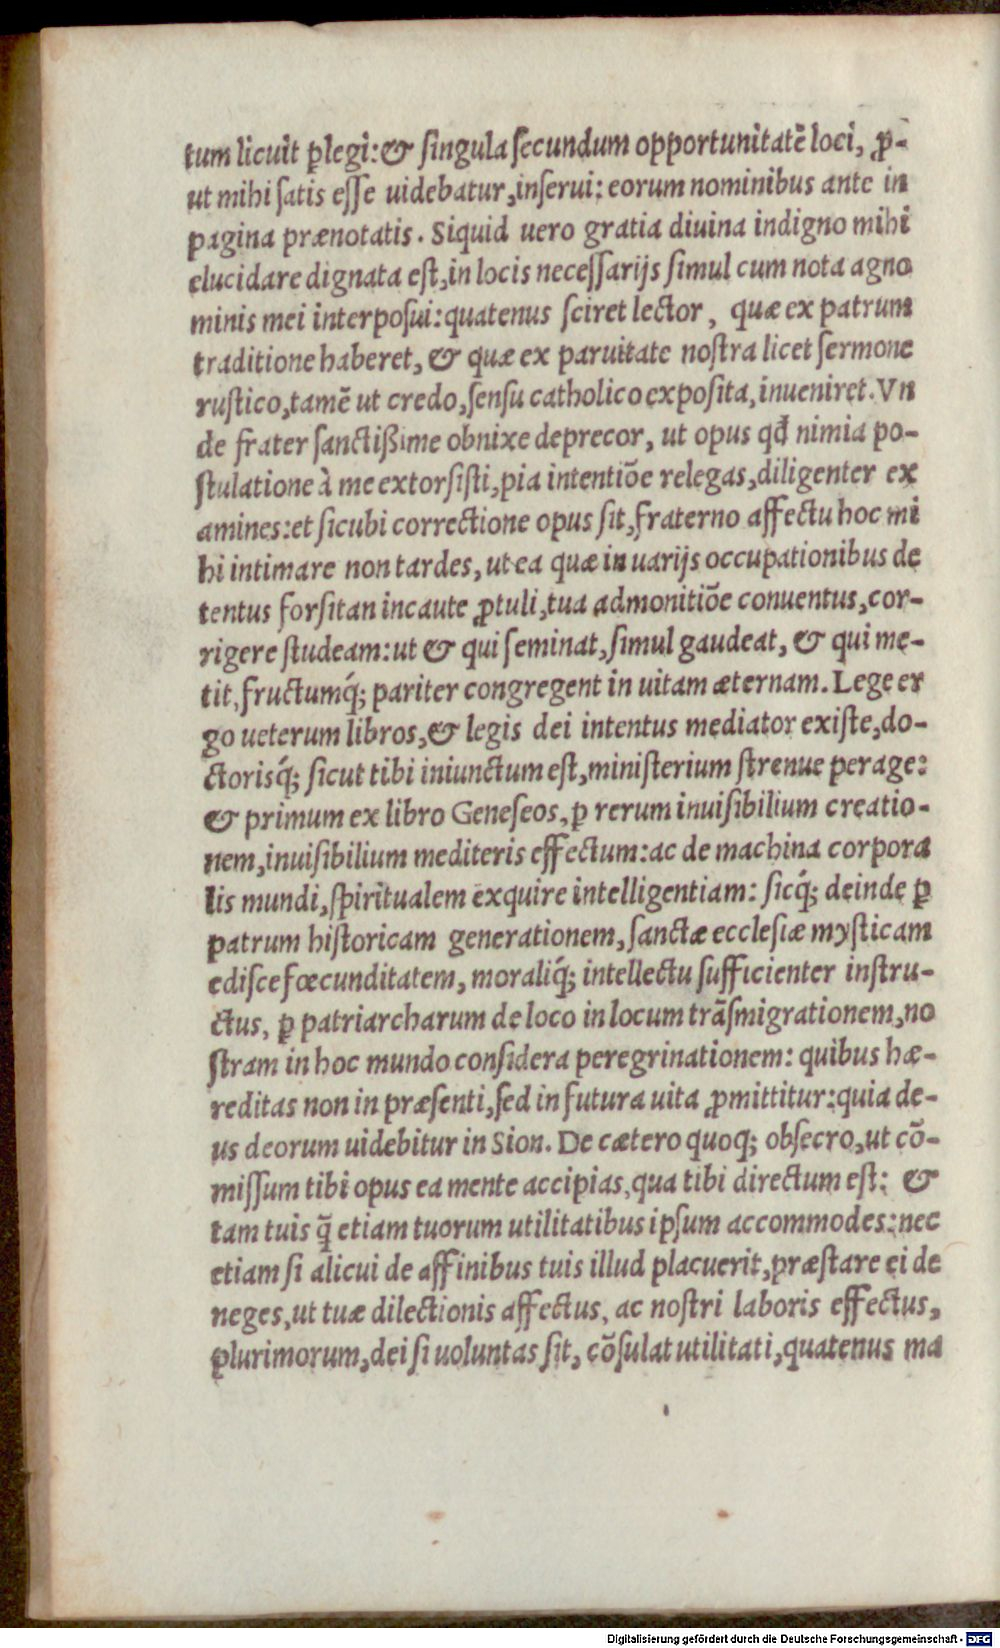 tum licuit ꝑlegi:& ſingula ſecundum opportunitatē loci, ꝓ-
ut mihi ſatis eſſe uidebatur,inſerui: eorum nominibus ante in
pagina prænotatis. Siquid uero gratia diuina indigno mihi
elucidare dignata eſt,in locis neceſſarijs ſimul cum nota agno
minis mei interpoſui:quatenus ſciret lector, quæ ex patrum
traditione haberet, & quæ ex paruitate noſtra licet ſermone
ruſtico,tamē ut credo,ſenſu catholico expoſita,inueniret. Vn
de frater ſanctißime obnixe deprecor, ut opus qđ nimia po-
ſtulatione à me extorſiſti,pia intentiōe relegas,diligenter ex
amines:et ſicubi correctione opus ſit,fraterno affectu hoc mi
hi intimare non tardes, ut ea quæ in uarijs occupationibus de
tentus forſitan incaute ꝓtuli,tua admonitiōe conuentus,cor-
rigere ſtudeam:ut & qui ſeminat,ſimul gaudeat, & qui me-
tit,fructumq́; pariter congregent in uitam æternam. Lege er
go ueterum libros,& legis dei intentus mediator exiſte,do-
ctorisq́; ſicut tibi iniunctum eſt,miniſterium ſtrenue perage:
& primum ex libro Geneſeos, ꝑ rerum inuiſibilium creatio-
nem,inuiſibilium mediteris effectum:ac de machina corpora
lis mundi,ſpiritualem exquire intelligentiam: ſicq́; deinde ꝑ
patrum hiſtoricam generationem,ſanctæ eccleſiæ myſticam
ediſce fœcunditatem, moraliq́; intellectu ſufficienter inſtru-
ctus, ꝑ patriarcharum de loco in locum trāſmigrationem,no
ſtram in hoc mundo conſidera peregrinationem: quibus hæ-
reditas non in præſenti,ſed in futura uita ꝓmittitur:quia de-
us deorum uidebitur in Sion. De cætero quoq; obſecro,ut cō-
miſſum tibi opus ea mente accipias,qua tibi directum eſt: &
tam tuis q̄ etiam tuorum utilitatibus ipſum accommodes:nec
etiam ſi alicui de affinibus tuis illud placuerit,præſtare ei de
neges,ut tuæ dilectionis affectus, ac noſtri laboris effectus,
plurimorum,dei ſi uoluntas ſit, cōſulat utilitati,quatenus ma
Digitalisierung gefördert durch die Deutsche Forschungsgemeinschaft - DFG